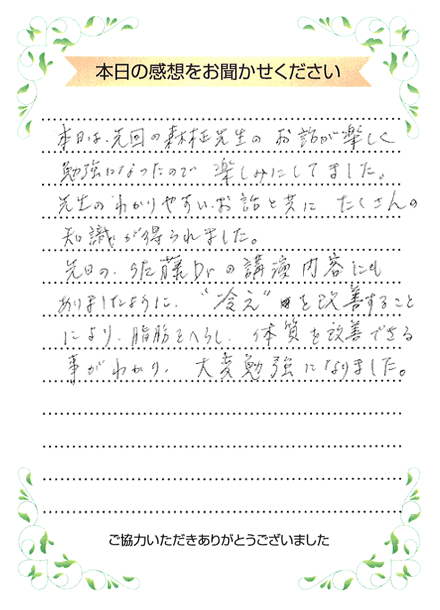 本日の感想をお聞かせください
本日は、先回の森村先生の お話が楽しく
勉強になったので 楽しみにしてました。
先生の わかりやすいお話と共に たくさんの
知識が得られました。
先日の、藤Drの講演内容にも
ありましたように、"冷え"を改善すること
により、脂肪をへらし、体質を改善できる
事がわかり、大変勉強になりました。
ご協力いただきありがとうございました